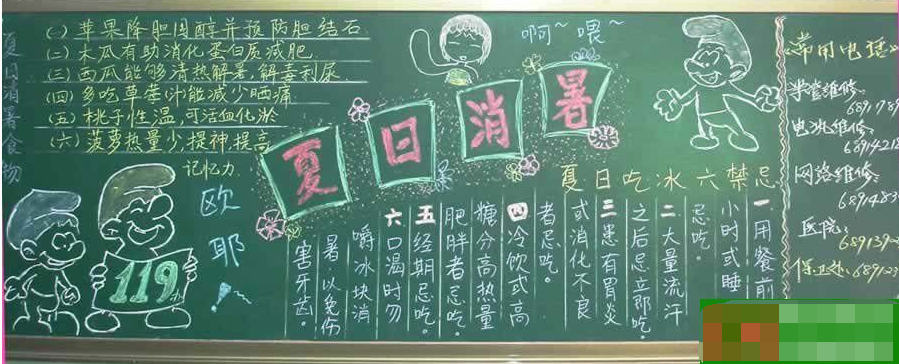 夏日消暑食物
(一) 苹果降胆固醇并预防胆结石
(二) 木瓜有助消化蛋白质减肥
(三) 西瓜能够清热解暑,解毒利尿
(四) 多吃草莓汁能减少晒痛
(五) 桃子性温,可活血化淤
(六) 菠萝热量少,提神提高
记忆力
啊~喂~
夏日消暑
欧耶!
119
夏日吃冰六禁忌
一用餐前
小时或睡
忌吃。
二大量流汗
之后忌立即吃。
三患有胃炎
或消化不良
者忌吃。
四冷饮或高
糖分高热量
肥胖者忌吃。
五经期忌吃。
六口渴时勿
嚼冰块消
暑以免伤
害牙齿。
常用电话
电池维修:
网络维修:
医院: